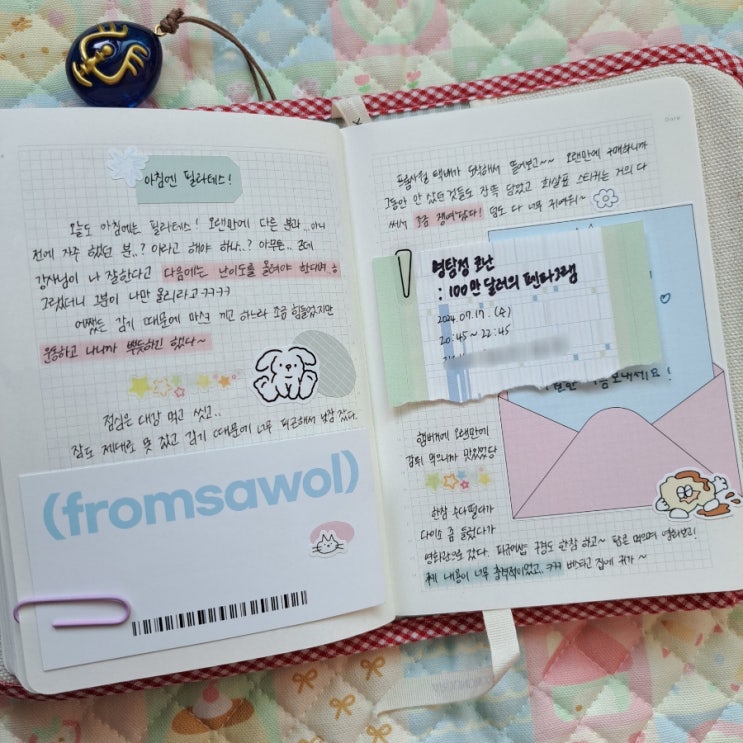 아침엔 필라테스!
오늘도 아침에는 필라테스! 오랜만에 다른 분과..아니
전에 자주 했었던 분..? 이라고 해야 하나..? 아무튼.. 근데
강사님이 나 잘한다고 다음에는 난이도를 올려야 한다며..ㅎ
그랬더니 그분이 나만 올리라고ㅋㅋㅋㅋ
어쨌든 감기 때문에 마스크 끼고 하느라 조금 힘들었지만
운동하고 나니까 뿌듯하긴 했다~
점심은 대강 먹고 씻고..
잠도 제대로 못 잤고 감기 때문에 너무 피곤해서 낮잠 잤다.
(fromsawol)
Date
프롬사월 택배가 도착해서 뜯어보고~~ 오랜만에 구매하니까
그동안 안 샀던 것들도 잔뜩 담았고 화살표 스티커는 거의 다
써서 조금 쟁여뒀다! 덤도 다 너무 귀여워~
명탐정 코난
: 100만 달러의 펜타그램
2024.07.17 (수)
20:45 ~ 22:45
햄버거에 오랜만에
감튀 먹으니까 맛있었당
한참 수다떨다가
다이소 좀 들렀다가
영화관으로 갔다. 피규어샵 구경도 한참 하고~ 팝콘 먹으며 영화보고!
내용이 너무 충격적이었고..ㅋㅋㅋ 버스타고 집에 귀가~